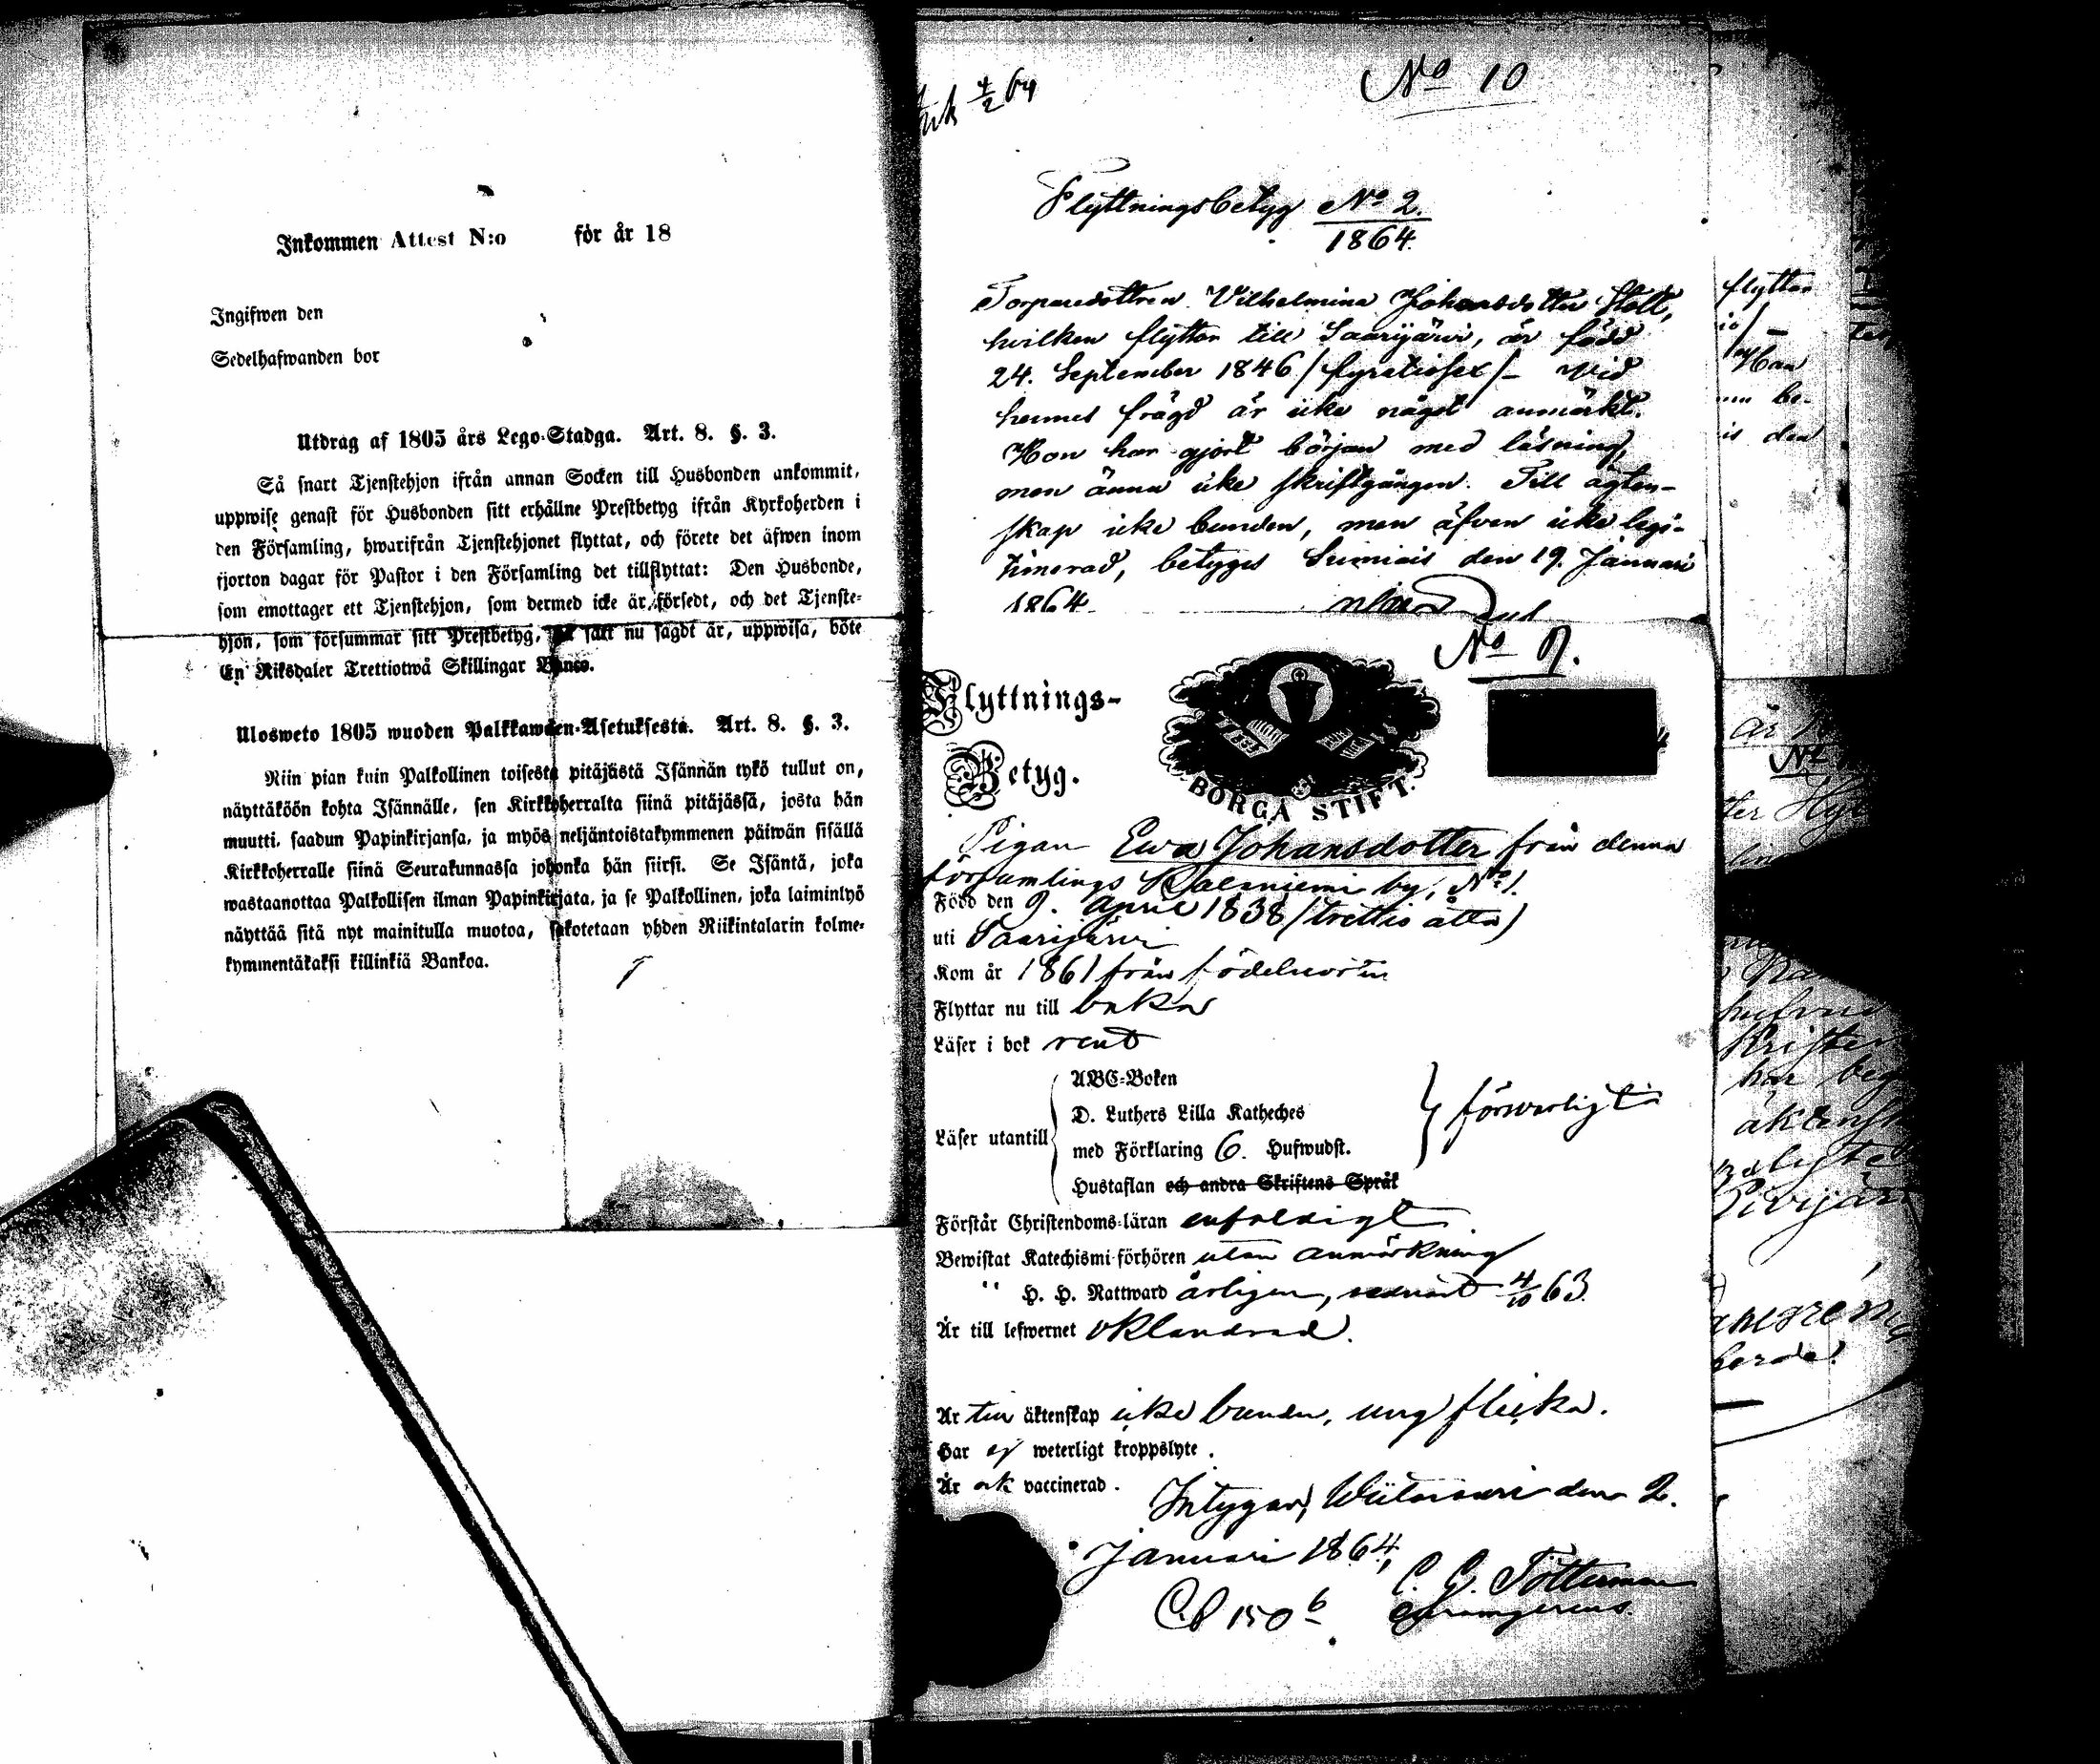 Inkommen Attest N:o för år 18
Ingifwen den
Sedelhafwanden bor
Utdrag af 1805 års Lego-Stadga. Art. 8. §. 3.
Så snart Tjenstehjon ifrån annan Socken till Husbonden ankommit,
uppwise genast för Husbonden sitt erhållne Prestbetyg ifrån Kyrkoherden i
den Församling, hwarifrån Tjenstehjonet flyttat, och förete det äfwen inom
fjorton dagar för Pastor i den Församling det tillflyttat: Den Husbonde,
som emottager ett Tjenstehjon, som dermed icke är försedt, och det Tjenste-
hjon, som försummar sitt Prestbetyg, sätt nu sagdt är, uppwisa, böte
En Riksdaler Trettiotwå Skillingar Banco.
Ulosweto 1805 wuoden Palkkawäen-Asetuksesta. Art. 8. §. 3.
Niin pian kuin Palkollinen toisesta pitäjästä Isännän tykö tullut on,
näyttäköön kohta Isännälle, sen Kirkkoherralta siinä pitäjässä, josta hän
muutti, saadun Papinkirjansa, ja myös neljäntoistakymmenen päiwän sisällä
Kirkkoherralle siinä Seurakunnassa johonka hän siirsi. Se Isäntä, joka
wastaanottaa Palkollisen ilman Papinkirjata, ja se Palkollinen, joka laiminlyö
näyttää sitä nyt mainitulla muotoa, sakotetaan yhden Riikintalarin kolme-
kymmentäkaksi killinkiä Bankoa.
4/2 64
No 10
Flyttningsbetyg No 2.
1864.
Torparedottren Vilhelmina Johansdotter Stolt,
hvilken flyttar till Saarijärvi, är född
24. September 1846 /fyratiosex/ – Vid
hennes frägd är icke något anmärkt.
Hon har gjort början med läsning,
men ännu icke skriftgången. Till ägten-
skap icke bunden, men äfven icke legi-
timerad, betyges Sumiais den 19. Januari
1864.
No 9.
Flyttnings-
Betyg.
BORGÅ STIFT.
Pigan Ewa Johansdotter från denna
församlings by, No 1.
Född den 9. April 1838 (trettio åtta)
uti Saarijärvi
Kom år 1861 från födelseorten
Flyttar nu till baka
Läser i bok rent
Läser utantill
ABC-Boken
D. Luthers Lilla Katheches
med Förklaring 6. Hufwudst.
Hustaflan och andra Skriftens Språk
försvarligt
Förstår Christendoms-läran enfaldigt
Bewistat Katechismi-förhören utan anmärkning
" H. H. Nattward årligen, senast 4/10 63.
Är till lefwernet oklandrad.
Är till äktenskap icke bunden, ung flicka.
Har ej weterligt kroppslyte.
Är ock vaccinerad.
Intygar, Wiitasaari den 2.
Januari 1864,
C. G. Tötterman
flyttar
Hon
be-
den